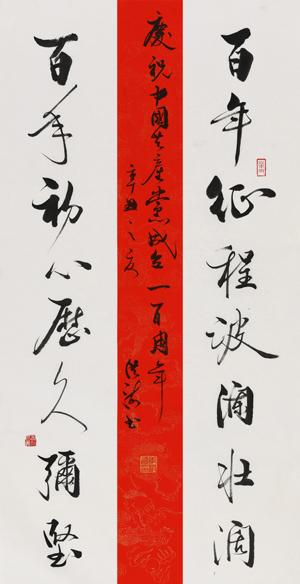 百年征程波澜壮阔
慶祝中國共產黨成立一百周年
辛丑之夏
書
百年初心歷久彌堅